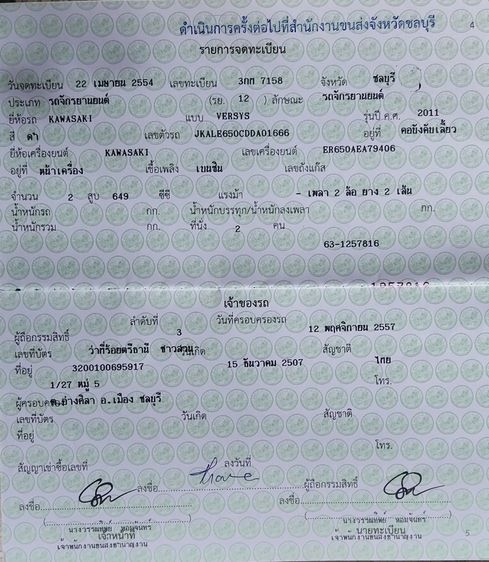 ดำเนินการครั้งต่อไปที่สำนักงานขนส่งจังหวัดชลบุรี
4
รายการจดทะเบียน
วันจดทะเบียน 22 เมษายน 2554 เลขทะเบียน 3กก 7158 จังหวัด ชลบุรี
ประเภท รถจักรยานยนต์ (รย. 12 ) ลักษณะ รถจักรยานยนต์
ยี่ห้อรถ KAWASAKI แบบ VERSYS รุ่นปี ค.ศ. 2011
สี ดำ เลขตัวรถ JKALE650CDDA01666 อยู่ที่ คอบังคับเลี้ยว
ยี่ห้อเครื่องยนต์ KAWASAKI เลขเครื่องยนต์ ER650AEA79406
อยู่ที่ หน้าเครื่อง เชื้อเพลิง เบนซิน เลขถังแก๊ส
จำนวน 2 สูบ 649 ซีซี แรงม้า - เพลา 2 ล้อ ยาง 2 เส้น
น้ำหนักรถ กก. น้ำหนักบรรทุก/น้ำหนักลงเพลา กก.
น้ำหนักรวม กก. ที่นั่ง 2 คน
63-1257816
เจ้าของรถ
ลำดับที่ 3 วันที่ครอบครองรถ 12 พฤศจิกายน 2557
ผู้ถือกรรมสิทธิ์ ว่าที่ร้อยตรีธานี ชาวสวน
เลขที่บัตร 3200100695917 วันเกิด 15 ธันวาคม 2507 สัญชาติ ไทย
ที่อยู่ 1/27 หมู่ 5 โทร.
ต.อ่างศิลา อ.เมือง ชลบุรี
ผู้ครอบครอง
เลขที่บัตร วันเกิด สัญชาติ
ที่อยู่
โทร.
สัญญาเช่าซื้อเลขที่ ลงวันที่
ลงชื่อ ผู้ถือกรรมสิทธิ์
ลงชื่อ ลงชื่อ
นางวรรณทิพย์ หอมจันทร์ นางวรรณทิพย์ หอมจันทร์
เจ้าหน้าที่ นายทะเบียน
เจ้าพนักงานขนส่งชำนาญงาน เจ้าพนักงานขนส่งชำนาญงาน
5